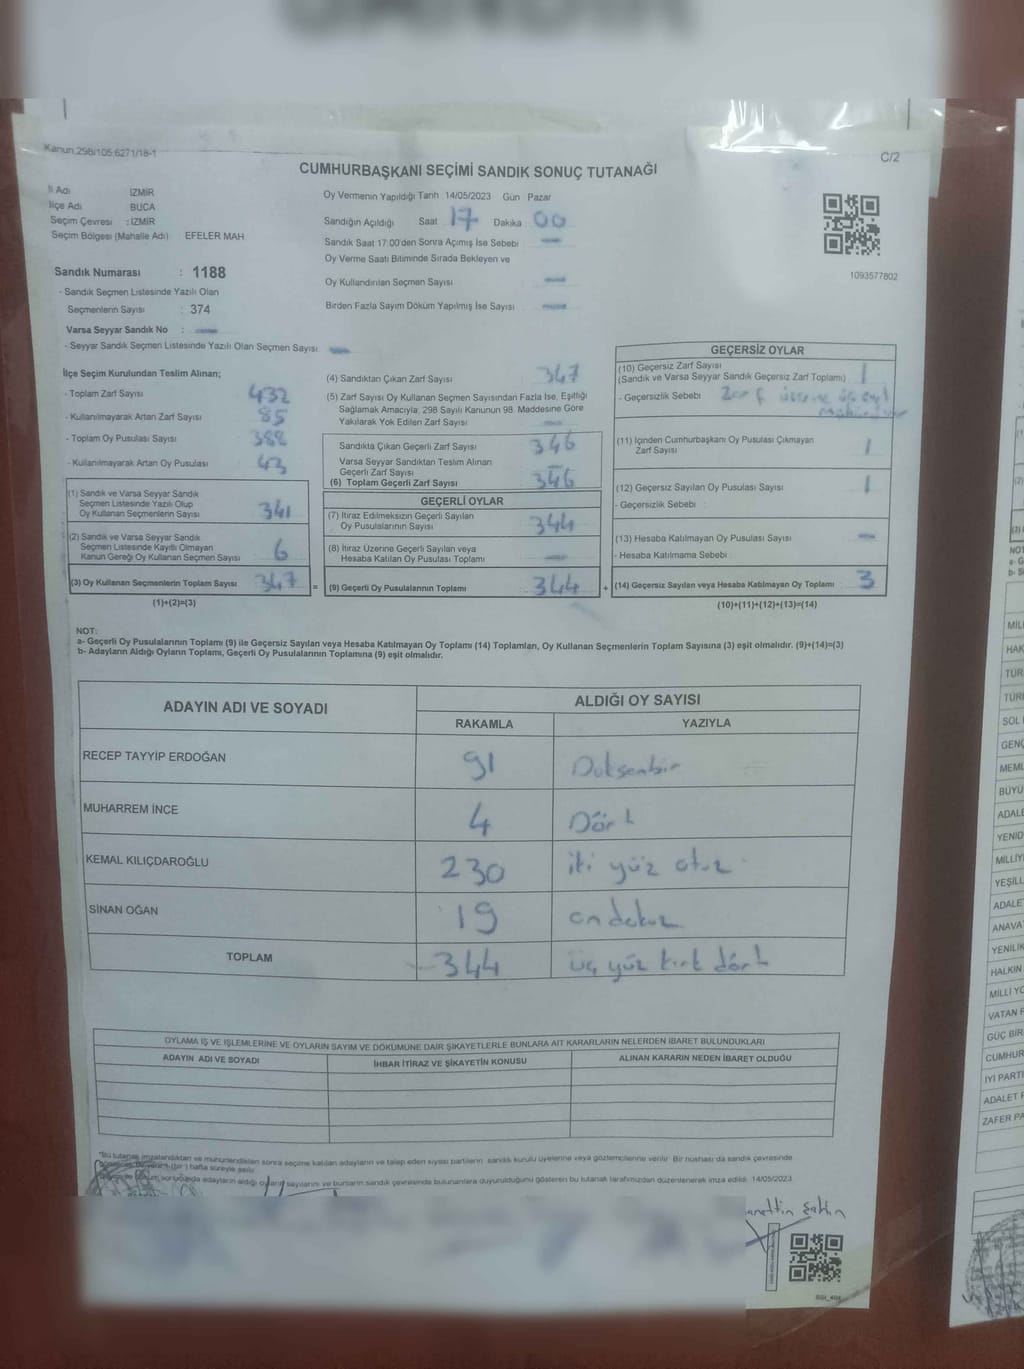 Kanun.298/105,6271/18-1
C/2
CUMHURBAŞKANI SEÇİMİ SANDIK SONUÇ TUTANAĞI
İl Adı İZMİR
İlçe Adı BUCA
Seçim Çevresi : İZMİR
Seçim Bölgesi (Mahalle Adı) EFELER MAH
Sandık Numarası : 1188
- Sandık Seçmen Listesinde Yazılı Olan
Seçmenlerin Sayısı : 374
Varsa Seyyar Sandık No :
- Seyyar Sandık Seçmen Listesinde Yazılı Olan Seçmen Sayısı:
Oy Vermenin Yapıldığı Tarih : 14/05/2023 Gün Pazar
Sandığın Açıldığı Saat 17 Dakika 00
Sandık Saat 17:00'den Sonra Açımış İse Sebebi
Oy Verme Saati Bitiminde Sırada Bekleyen ve
Oy Kullandırılan Seçmen Sayısı
Birden Fazla Sayım Döküm Yapılmış İse Sayısı
1093577802
İlçe Seçim Kurulundan Teslim Alınan;
- Toplam Zarf Sayısı 432
- Kullanılmayarak Artan Zarf Sayısı 85
- Toplam Oy Pusulası Sayısı 388
- Kullanılmayarak Artan Oy Pusulası 43
(1) Sandık ve Varsa Seyyar Sandık
Seçmen Listesinde Yazılı Olup
Oy Kullanan Seçmenlerin Sayısı 341
(2) Sandık ve Varsa Seyyar Sandık
Seçmen Listesinde Kayıtlı Olmayan
Kanun Gereği Oy Kullanan Seçmen Sayısı 6
(3) Oy Kullanan Seçmenlerin Toplam Sayısı 347 =
(1)+(2)=(3)
(4) Sandıktan Çıkan Zarf Sayısı 347
(5) Zarf Sayısı Oy Kullanan Seçmen Sayısından Fazla İse, Eşitliği
Sağlamak Amacıyla; 298 Sayılı Kanunun 98. Maddesine Göre
Yakılarak Yok Edilen Zarf Sayısı
Sandıkta Çıkan Geçerli Zarf Sayısı 346
Varsa Seyyar Sandıktan Teslim Alınan
Geçerli Zarf Sayısı
(6) Toplam Geçerli Zarf Sayısı 346
GEÇERLİ OYLAR
(7) İtiraz Edilmeksizin Geçerli Sayılan
Oy Pusulalarının Sayısı 344
(8) İtiraz Üzerine Geçerli Sayılan veya
Hesaba Katılan Oy Pusulası Toplamı
(9) Geçerli Oy Pusulalarının Toplamı 344 +
GEÇERSİZ OYLAR
(10) Geçersiz Zarf Sayısı
(Sandık ve Varsa Seyyar Sandık Geçersiz Zarf Toplamı) 1
- Geçersizlik Sebebi Zarf üzerine üç
(11) İçinden Cumhurbaşkanı Oy Pusulası Çıkmayan
Zarf Sayısı 1
(12) Geçersiz Sayılan Oy Pusulası Sayısı 1
- Geçersizlik Sebebi
(13) Hesaba Katılmayan Oy Pusulası Sayısı
- Hesaba Katılmama Sebebi
(14) Geçersiz Sayılan veya Hesaba Katılmayan Oy Toplamı 3
(10)+(11)+(12)+(13)=(14)
NOT:
a- Geçerli Oy Pusulalarının Toplamı (9) ile Geçersiz Sayılan veya Hesaba Katılmayan Oy Toplamı (14) Toplamları, Oy Kullanan Seçmenlerin Toplam Sayısına (3) eşit olmalıdır. (9)+(14)=(3)
b- Adayların Aldığı Oyların Toplamı, Geçerli Oy Pusulalarının Toplamına (9) eşit olmalıdır.
ADAYIN ADI VE SOYADI
ALDIĞI OY SAYISI
RAKAMLA YAZIYLA
RECEP TAYYİP ERDOĞAN 91 Doksanbir
MUHARREM İNCE 4 Dört
KEMAL KILIÇDAROĞLU 230 iki yüz otuz
SİNAN OĞAN 19 on dokuz
TOPLAM 344 üç yüz kırk dört
OYLAMA İŞ VE İŞLEMLERİNE VE OYLARIN SAYIM VE DÖKÜMÜNE DAİR ŞİKAYETLERLE BUNLARA AİT KARARLARIN NELERDEN İBARET BULUNDUKLARI
ADAYIN ADI VE SOYADI İHBAR İTİRAZ VE ŞİKAYETİN KONUSU ALINAN KARARIN NEDEN İBARET OLDUĞU
*Bu tutanak imzalandıktan ve mühürlendikten sonra seçime katılan adayların ve talep eden siyasi partilerin sandık kurulu üyelerine veya gözlemcilerine verilir. Bir nüshası da sandık çevresinde
(bir) hafta süreyle asılır.
sonucunda adayların aldığı oyların sayılarını ve bunların sandık çevresinde bulunanlara duyurulduğunu gösteren bu tutanak tarafımızdan düzenlenerek imza edildi. 14/05/2023
Şahin
HAK
TÜR
SOL
GENÇ
MEML
BÜYÜ
ADALE
YENİD
MİLLİY
YEŞİLL
ADALE
ANAVA
YENİLİK
HALKIN
MİLLİ YO
VATAN P
GÜÇ BİR
CUMHUR
İYİ PARTİ
ADALET
ZAFER PA